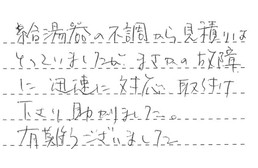 給湯器の不調から見積りは
とっていましたが、まさかの故障
に迅速に対応、取付け
下さり助かりました。
有難うございました